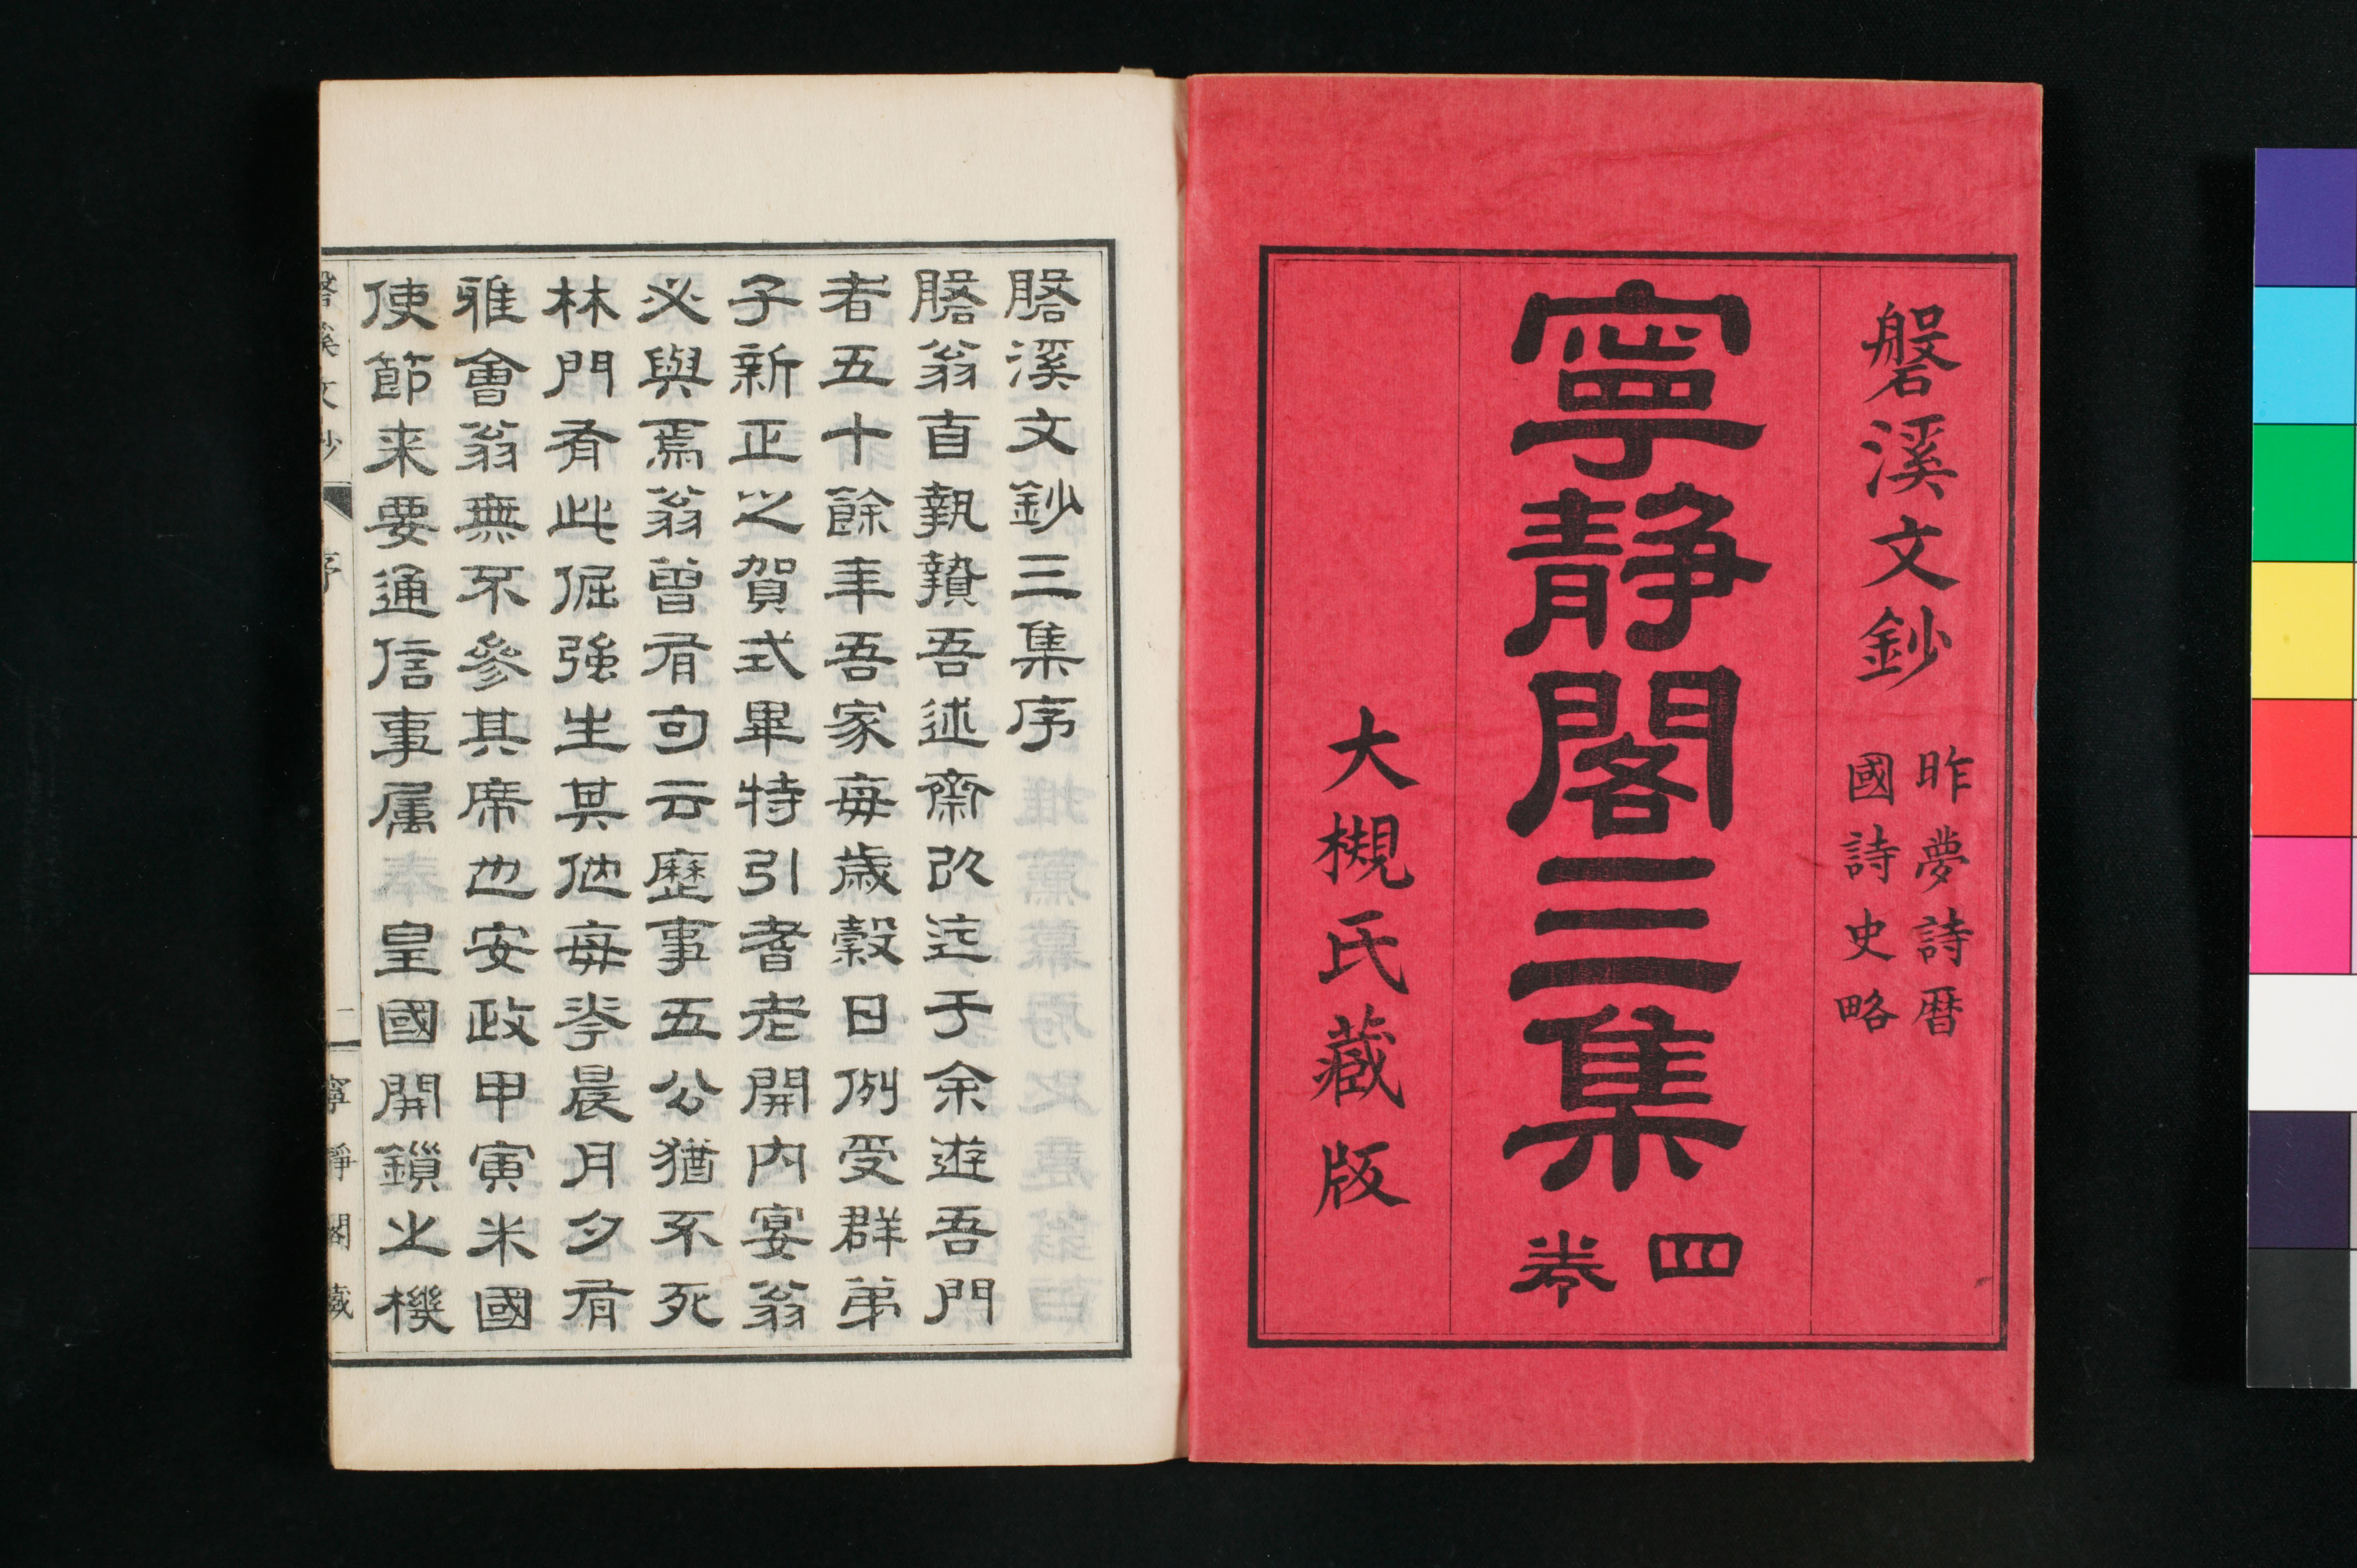 磐溪文鈔
昨夢詩曆
國詩史略
寧靜閣三集
四卷
大槻氏藏版
磐溪文鈔三集序
磐翁自執贄吾述齋以迄于余遊吾門
者五十餘年吾家每歲穀日例受群弟
子新正之賀式畢特引耆老開內宴翁
必與焉翁曾有句云歷事五公猶不死
林門有此倔強生其他每花晨月夕有
雅會翁無不參其席也安政甲寅米國
使節来要通信事属 皇國開鎖之機
磐溪文鈔 序 一 寧靜閣藏